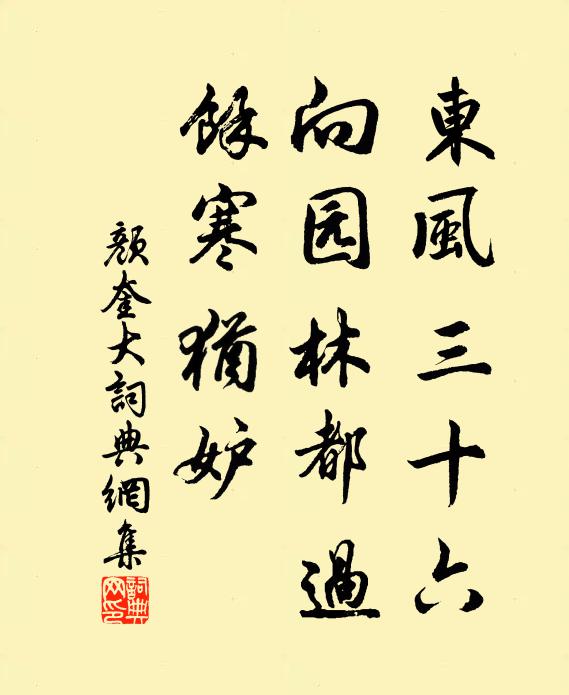 東風三十六
向园林都過
餘寒猶妒
顏奎大詞典網集
詞典网印